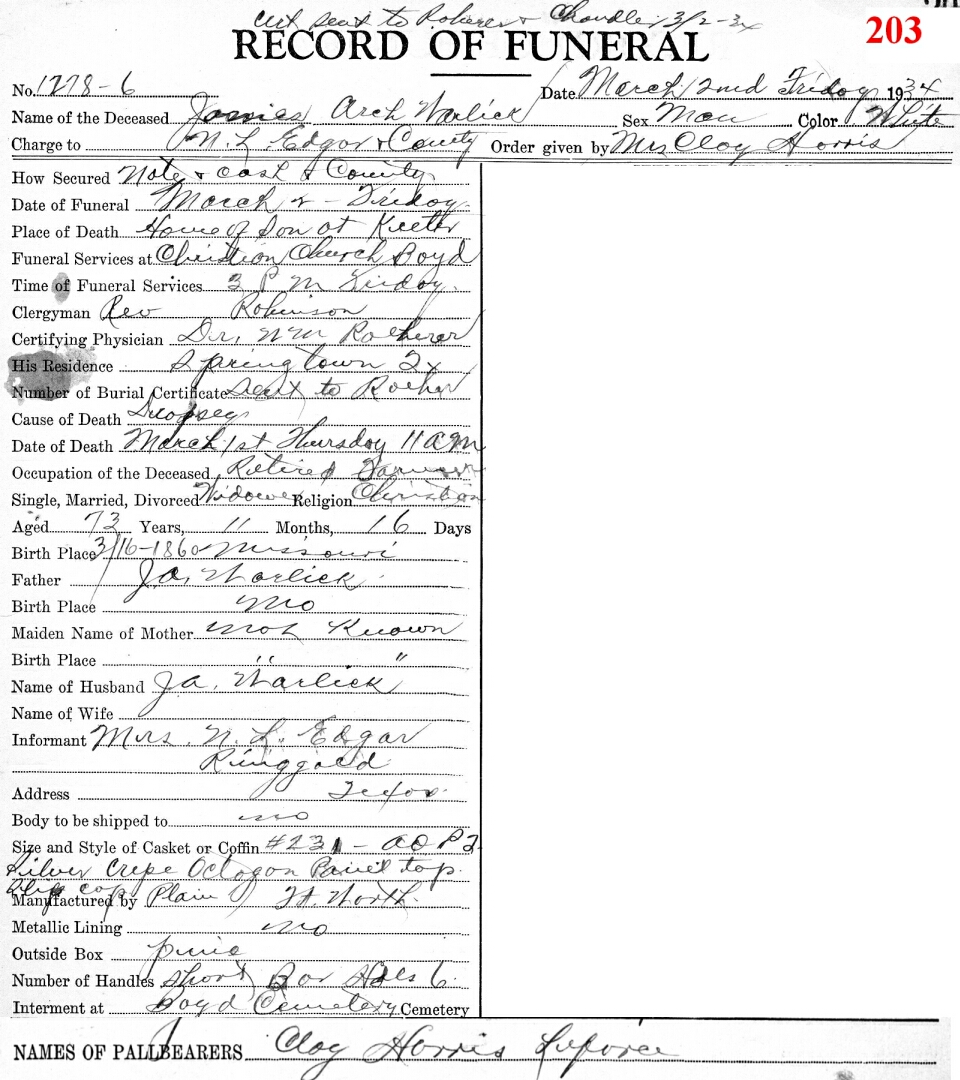 Cert sent to Roherer & Chandler 3/2-34
203
RECORD OF FUNERAL
No. 1278-6 Date March 2nd Friday 1934
Name of the Deceased James Arch Warlick Sex Man Color White
Charge to N. L. Edgar & County Order given by Mrs Cloy Harris
How Secured Note & cash & County
Date of Funeral March 2 - Friday
Place of Death Home of Son at Keeter
Funeral Services at Christian Church Boyd
Time of Funeral Services 3 P m Friday.
Clergyman Rev Robinson
Certifying Physician Dr. Wm Rocherer
His Residence Springtown Tx
Number of Burial Certificate Sent to Rocher
Cause of Death Dropsey
Date of Death March 1st Thursday 11 a m
Occupation of the Deceased Retired Farmer
Single, Married, Divorced Widower Religion Christian
Aged 73 Years, 11 Months, 16 Days
Birth Place 3/16-1860 Missouri
Father J.a. Warlick
Birth Place Mo
Maiden Name of Mother Not Known
Birth Place " "
Name of Husband J a. Warlick
Name of Wife
Informant Mrs. N. L. Edgar
Ringgold
Address Texas.
Body to be shipped to no
Size and Style of Casket or Coffin #231 - 
Silver Crepe Octogon Panel top.
Slip cap
Manufactured by Plain Ft Worth.
Metallic Lining no
Outside Box pine
Number of Handles Short Bar Hdls 6.
Interment at Boyd Cemetery Cemetery
NAMES OF PALLBEARERS Cloy Harris